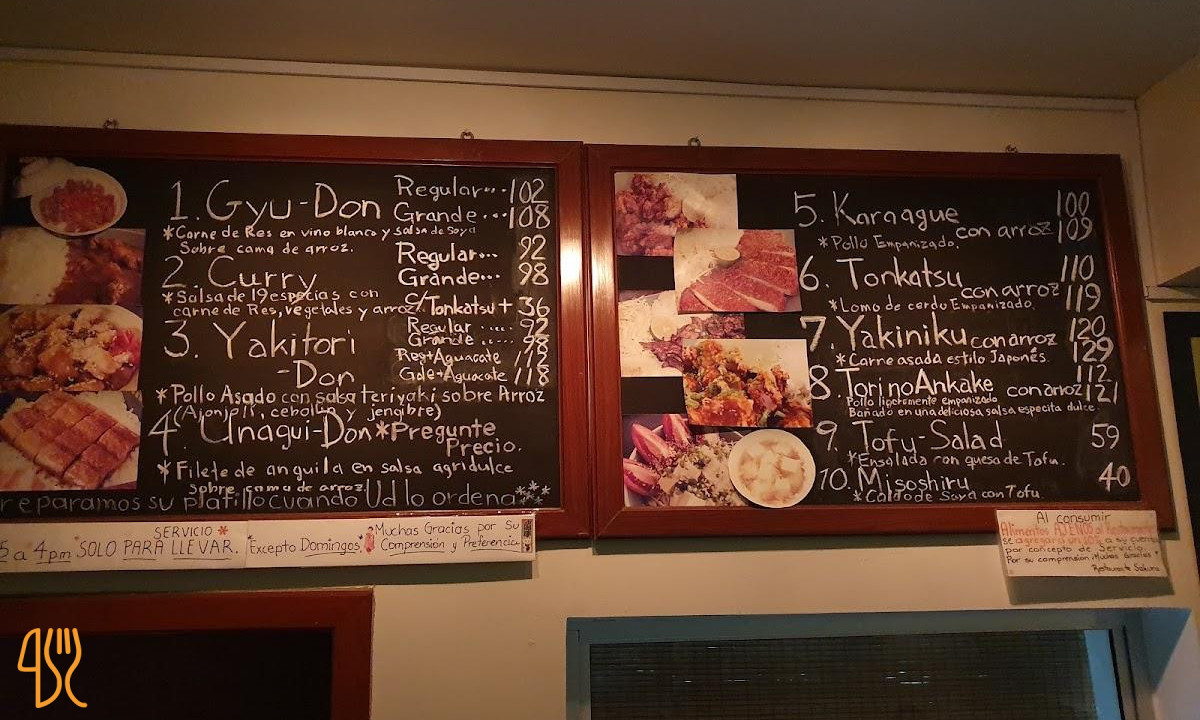 1. Gyu-Don Regular... 102
Grande... 108
*Carne de Res en vino blanco y salsa de Soya
Sobre cama de arroz.
2 Curry Regular... 92
Grande... 98
*Salsa de 19 especias con
carne de Res, vegetales y arroz. c/Tonkatsu + 36
3. Yakitori Regular .... 92
Grande .... 98
-Don Reg+Aguacate 112
Gde+Aguacate 118
*Pollo Asado con salsa teriyaki sobre Arroz
(Ajonjolí, cebollín y jengibre)
4. Unagui-Don *Pregunte
Precio.
*Filete de anguila en salsa agridulce
Sobre cama de arroz
reparamos su platillo cuando Ud lo ordena
5. Karaague 100
con arroz 109
*Pollo Empanizado.
6. Tonkatsu 110
con arroz 119
*Lomo de cerdo Empanizado.
7. Yakiniku 120
con arroz 129
*Carne asada estilo Japonés
8. Torino Ankake 112
con arroz 121
Pollo ligeramente empanizado
Bañado en una deliciosa salsa especita dulce.
9. Tofu-Salad 59
*Ensalada con queso de Tofu.
10. Misoshiru 40
*Caldo de Soya con Tofu
SERVICIO *
5 a 4pm SOLO PARA LLEVAR.
Excepto Domingos.
Muchas Gracias por Su
Comprensión y Preferencia
Al consumir
Alimentos AJENOS al Restaurante
se agregará un a su cuenta
por concepto de Servicio.
Por su comprensión, Muchas Gracias
Restaurante Sakura